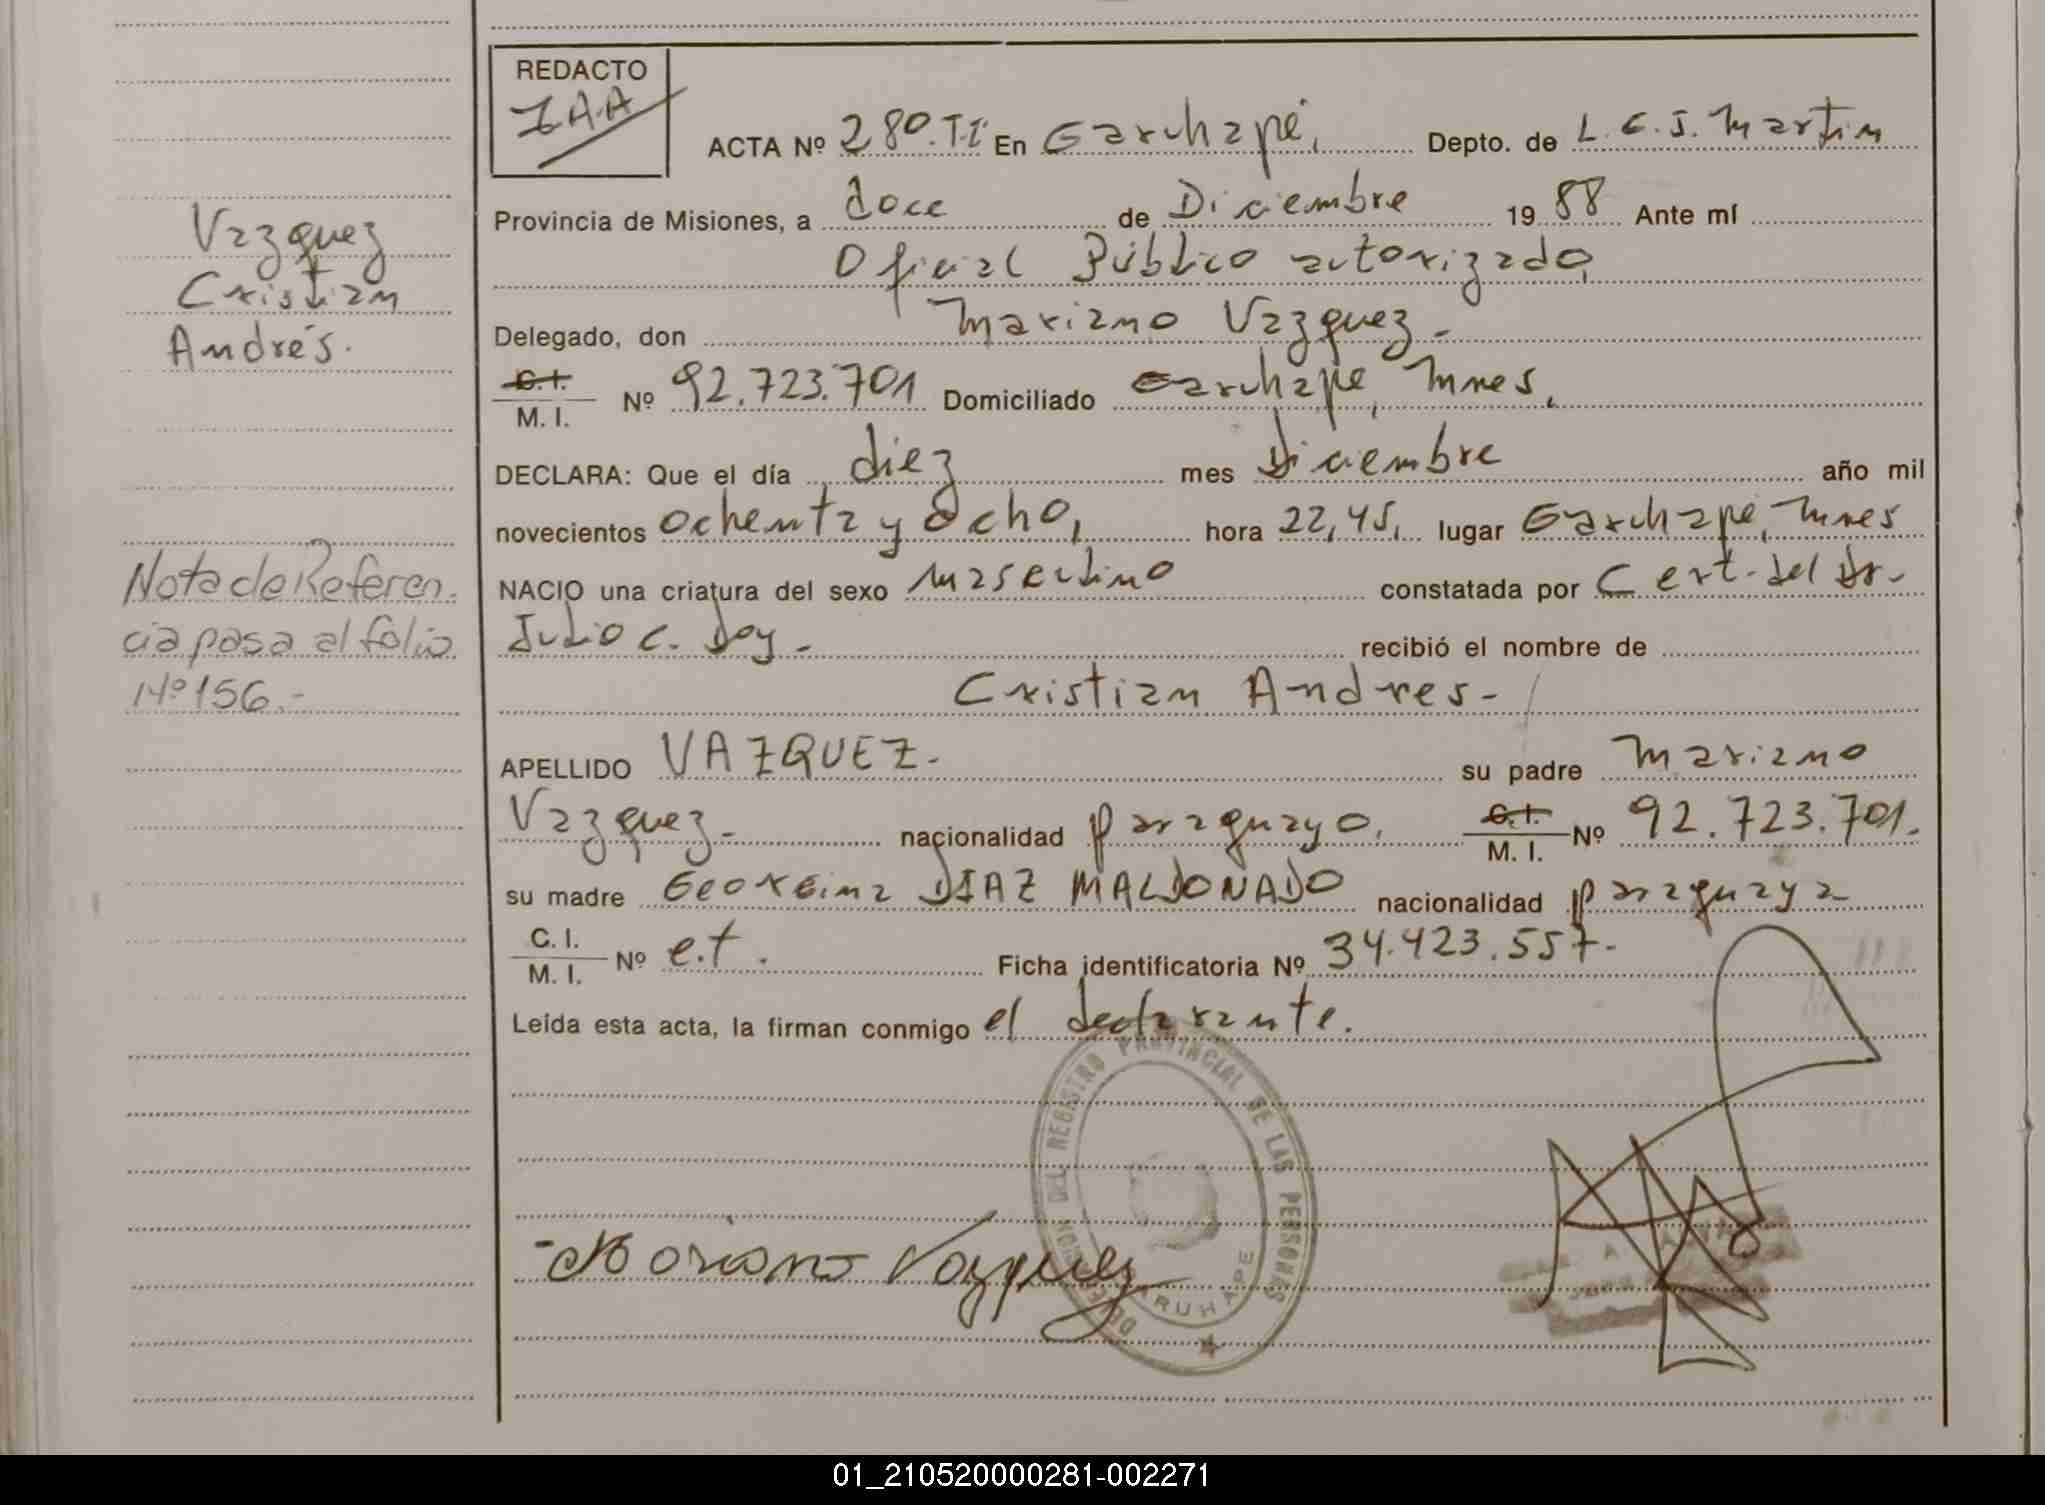 REDACTO
ZAA
ACTA Nº 280.TI En Garuhapé, Depto. de L.G.S. Martin
Provincia de Misiones, a doce de Diciembre 1988 Ante mí
Oficial Público autorizado,
Delegado, don Mariano Vazquez.-
C.I. M. I. Nº 92.723.701 Domiciliado Garuhapé, Mnes,
DECLARA: Que el día diez mes Diciembre año mil
novecientos ochenta y ocho, hora 22,45, lugar Garuhapé, Mnes
NACIO una criatura del sexo masculino constatada por Cert. del Dr.
Julio C. Doy.- recibió el nombre de
Cristian Andres.-
APELLIDO VAZQUEZ.- su padre Mariano
Vazquez.- nacionalidad paraguayo, C.I. M. I. Nº 92.723.701.
su madre Georgina DIAZ MALDONADO nacionalidad paraguaya
C. I. M. I. Nº e.t. Ficha identificatoria Nº 34.423.557.-
Leída esta acta, la firman conmigo el declarante.
Vazquez
Cristian
Andrés.
Nota de Referen-
cia pasa al folio
Nº 156.-
DEL REGISTRO PROVINCIAL DE LAS PERSONAS
GARUHAPE
Mariano Vazquez
01_210520000281-002271